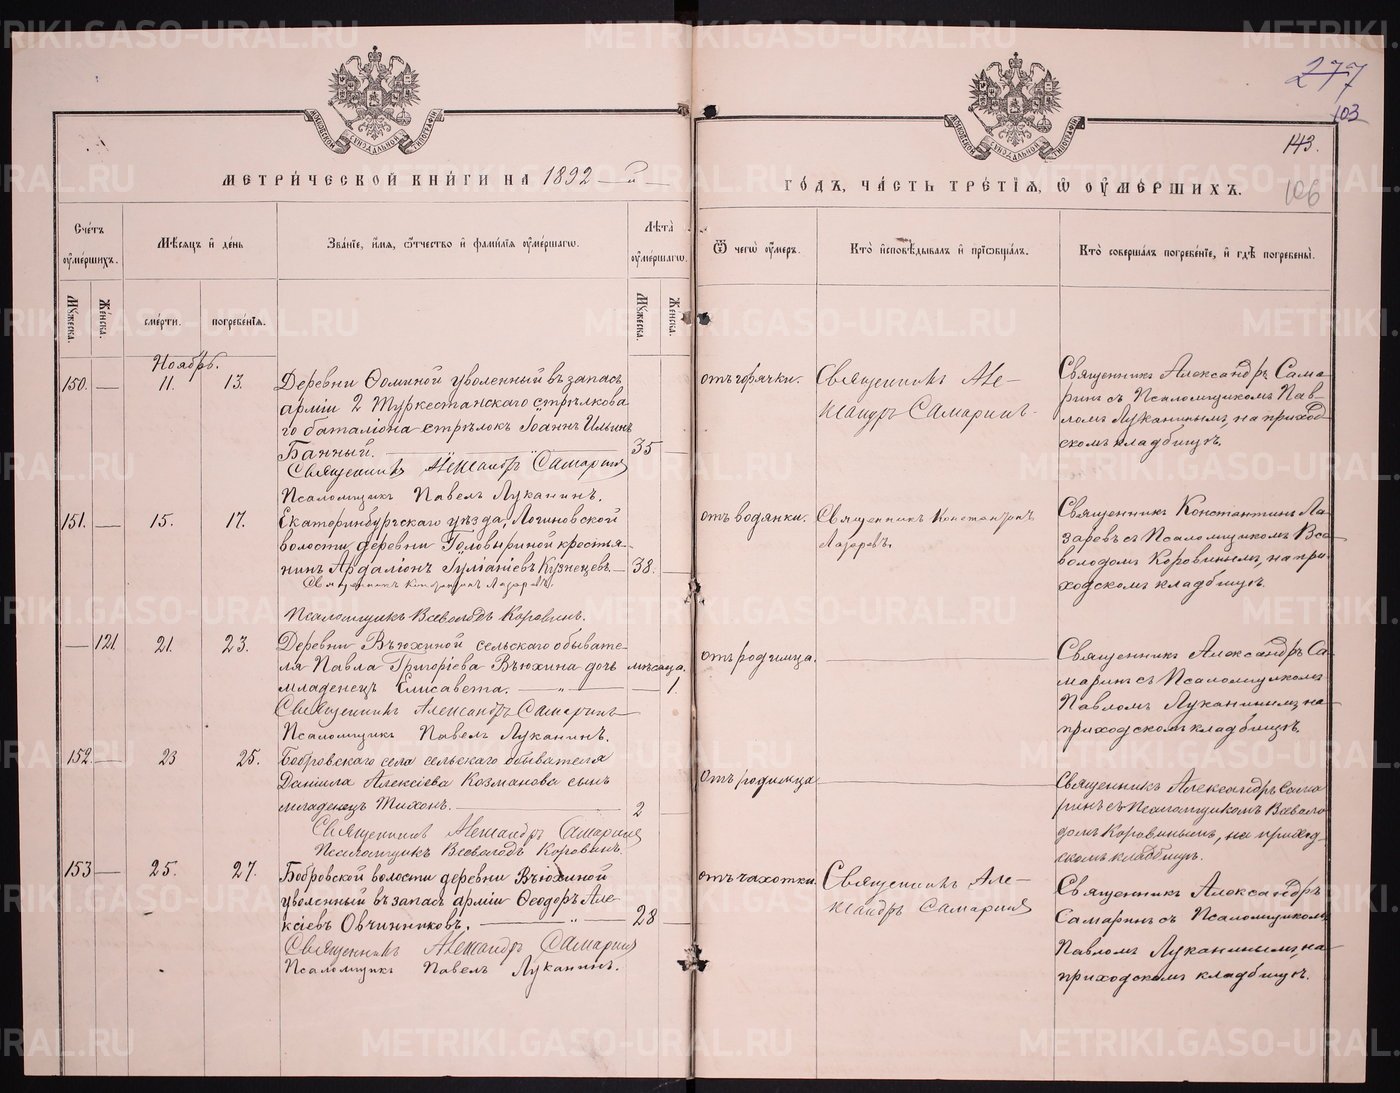 277
103
143.
106
МОСКОВСКОЙ СѴНОДАЛЬНОЙ ТИПОГРАФІИ
МОСКОВСКОЙ СѴНОДАЛЬНОЙ ТИПОГРАФІИ
МЕТРИ́ЧЕСКОЙ КНИ́ГИ НА 1892 – й –
ГО́ДЪ, ЧА́СТЬ ТРЕ́ТІѦ, Ѡ҆ ОУ҆МЕ́РШИХЪ.
Сче́тъ оу҆ме́ршихъ.
Мѣ́сѧцъ и҆ де́нь
Зва́нїе, и҆́мѧ, ѻ҆́тчество и҆ фами́лїѧ оу҆ме́ршагѡ.
Лѣ́та оу҆ме́ршагѡ.
Ѿ чегѡ̀ оу҆́меръ.
Кто̀ и҆сповѣ́дывалъ и҆ прїѡбща́лъ.
Кто̀ соверша́лъ погребе́нїе, и҆ гдѣ̀ погребены̀.
Мꙋ́жеска.
Же́нска.
сме́рти.
погребе́нїѧ.
Мꙋ́жеска.
Же́нска.
Ноябрь.
150. — 11. 13.
Деревни Ѳоминой уволенный въ запасъ
арміи 2 Туркестанскаго стрѣлкова
го баталіона стрѣлокъ Іоаннъ Ильинъ
Банный. — 35 —
Священникъ Александръ Самаринъ
Псаломщикъ Павелъ Луканинъ.
отъ горячки.
Священникъ Але-
ксандръ Самаринъ.
Священникъ Александръ Сама-
ринъ съ Псаломщикомъ Пав-
ломъ Луканинымъ, на приход-
скомъ кладбищѣ.
151. — 15. 17.
Екатеринбургскаго уѣзда, Логиновской
волости, деревни Головыриной крестья-
нинъ Ардаліонъ Іуліаніевъ Кузнецевъ. — 38. —
Священникъ Константинъ Лазаревъ.
Псаломщикъ Всеволодъ Коровинъ.
отъ водянки.
Священникъ Константинъ
Лазаревъ.
Священникъ Константинъ Ла-
заревъ съ Псаломщикомъ Все-
володомъ Коровинымъ, на при-
ходскомъ кладбищѣ.
— 121. 21. 23.
Деревни Вьюхиной сельскаго обывате-
ля Павла Григоріева Вьюхина дочь мѣсяца.
младенецъ Елисавета. — „ — — 1.
Священникъ Александръ Самаринъ
Псаломщикъ Павелъ Луканинъ.
отъ родимца. —
Священникъ Александръ Са-
маринъ съ Псаломщикомъ
Павломъ Луканинымъ, на
приходскомъ кладбищѣ.
152. — 23 25.
Бобровскаго села сельскаго обывателя
Даніила Алексіева Козманова сынъ
младенецъ Тихонъ. — 2
Священникъ Александръ Самаринъ
Псаломщикъ Всеволодъ Коровинъ.
Отъ родимца —
Священникъ Александръ Сама-
ринъ съ Псаломщикомъ Всеволо-
домъ Коровинымъ, на приход-
скомъ кладбищѣ.
153 — 25. 27.
Бобровской волости деревни Вьюхиной
уволенный въ запасъ арміи Ѳеодоръ Але-
ксіевъ Овчинниковъ. — „ — 28 —
Священникъ Александръ Самаринъ
Псаломщикъ Павелъ Луканинъ.
отъ чахотки.
Священникъ Але-
ксандръ Самаринъ
Священникъ Александръ
Самаринъ съ Псаломщикомъ
Павломъ Луканинымъ, на
приходскомъ кладбищѣ.
METRIKI.GASO-URAL.RU